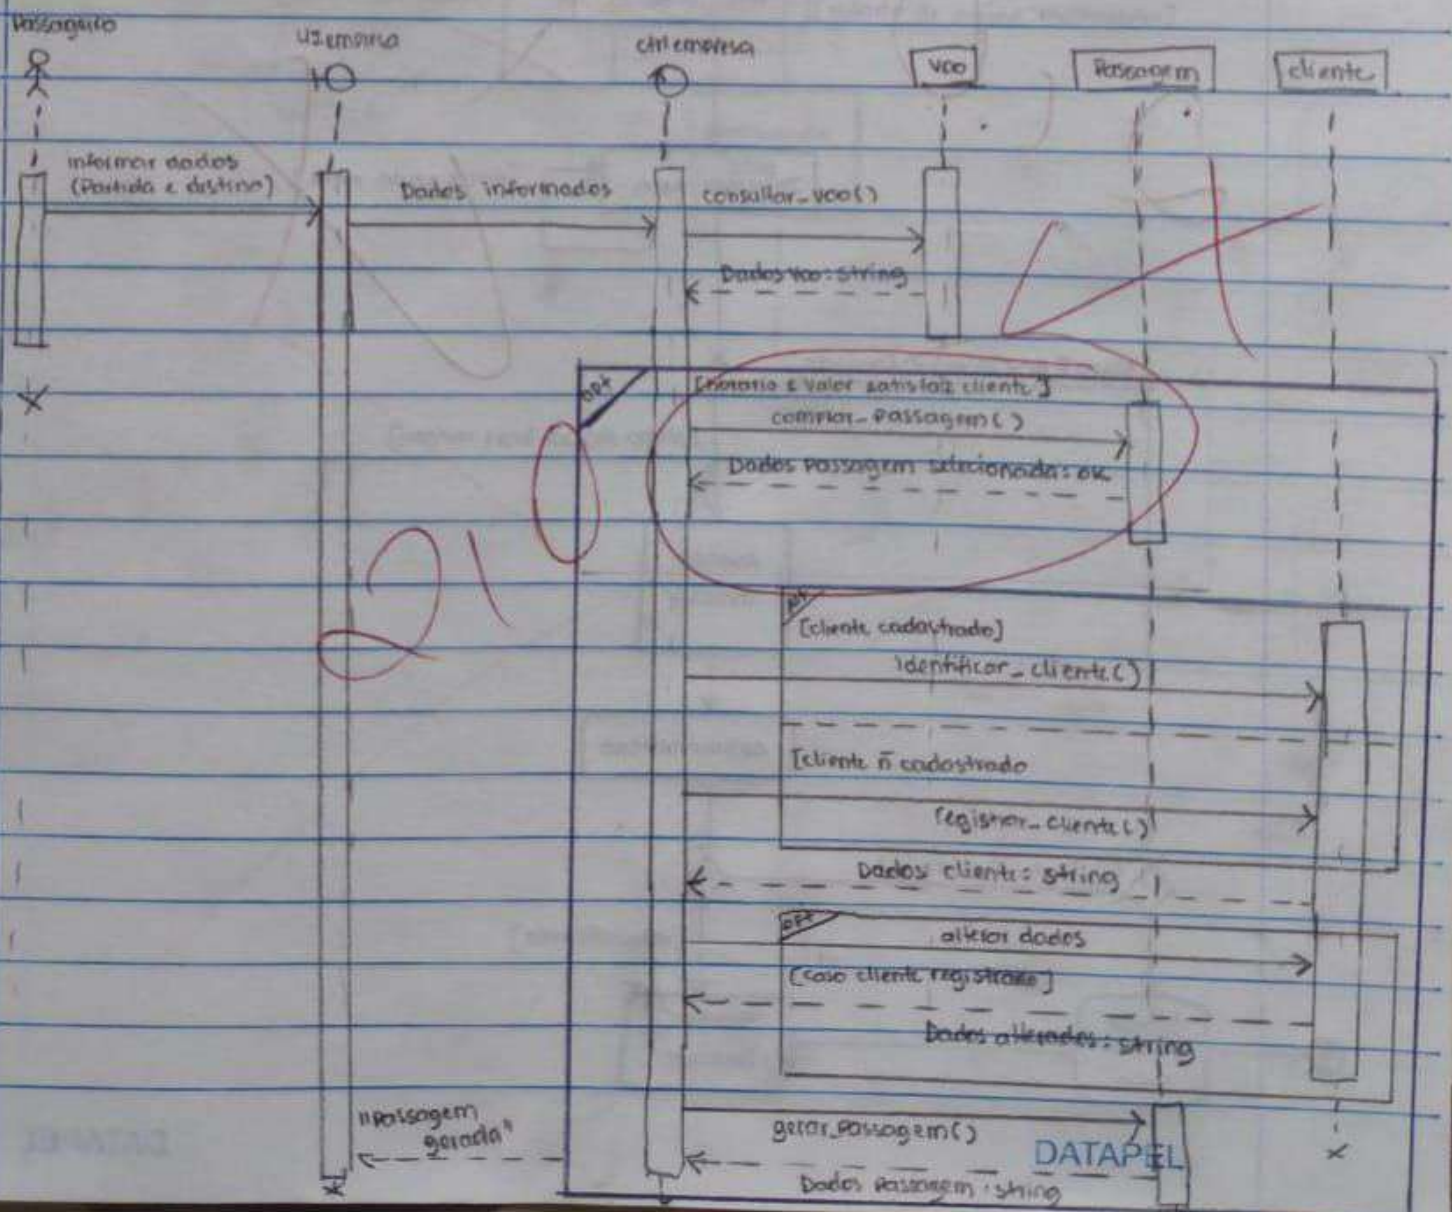 Passageiro
UIempresa
ctrlempresa
voo
Passagem
cliente
informar dados
(Partida e distino)
Dados informados
consultar_voo()
Dados voo: string
opt
[horario e valor satisfaiz cliente]
comprar_passagem()
Dados passagem selecionada: ok
21
alt
[cliente cadastrado]
identificar_cliente()
[cliente ñ cadastrado
registrar_cliente()
Dados cliente: string
opt
alterar dados
[caso cliente registrado]
Dados alterados: string
"Passagem
gerada"
gerar_passagem()
DATAPEL
Dados passagem: string